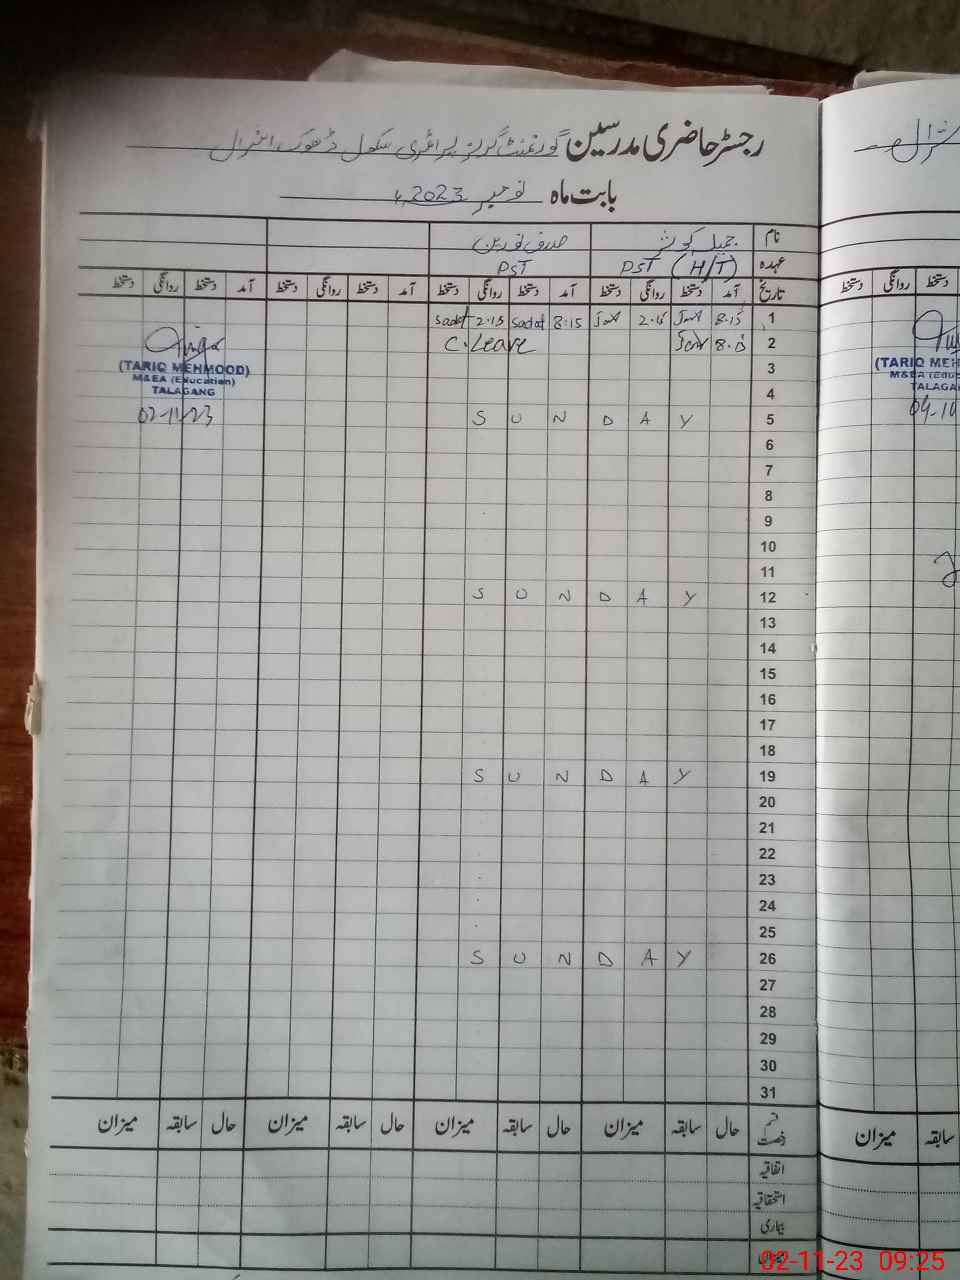 رجسٹر حاضری مدرسین گورنمنٹ گرلز پرائمری سکول ڈھوک
بابت ماہ نومبر 2023ء
نام جمیلہ کوثر صدف نورین
عہدہ PST (H/T) PST
تاریخ آمد دستخط روانگی دستخط آمد دستخط روانگی دستخط آمد دستخط روانگی دستخط آمد دستخط روانگی دستخط
1 8.15 2.15 8:15 Sadaf 2.15 Sadaf
2 8.15 C.Leave
3
4
5 S U N D A Y
6
7
8
9
10
11
12 S U N D A Y
13
14
15
16
17
18
19 S U N D A Y
20
21
22
23
24
25
26 S U N D A Y
27
28
29
30
31
قسم رخصت حال سابقہ میزان حال سابقہ میزان حال سابقہ میزان حال سابقہ میزان
اتفاقیہ
استحقاقیہ
بیماری
(TARIQ MEHMOOD)
M&EA (Education)
TALAGANG
02-11-23
دستخط روانگی دستخط
(TARIQ MEH
M&EA (Educ
TALAGA
میزان سابقہ
02-11-23 09:25